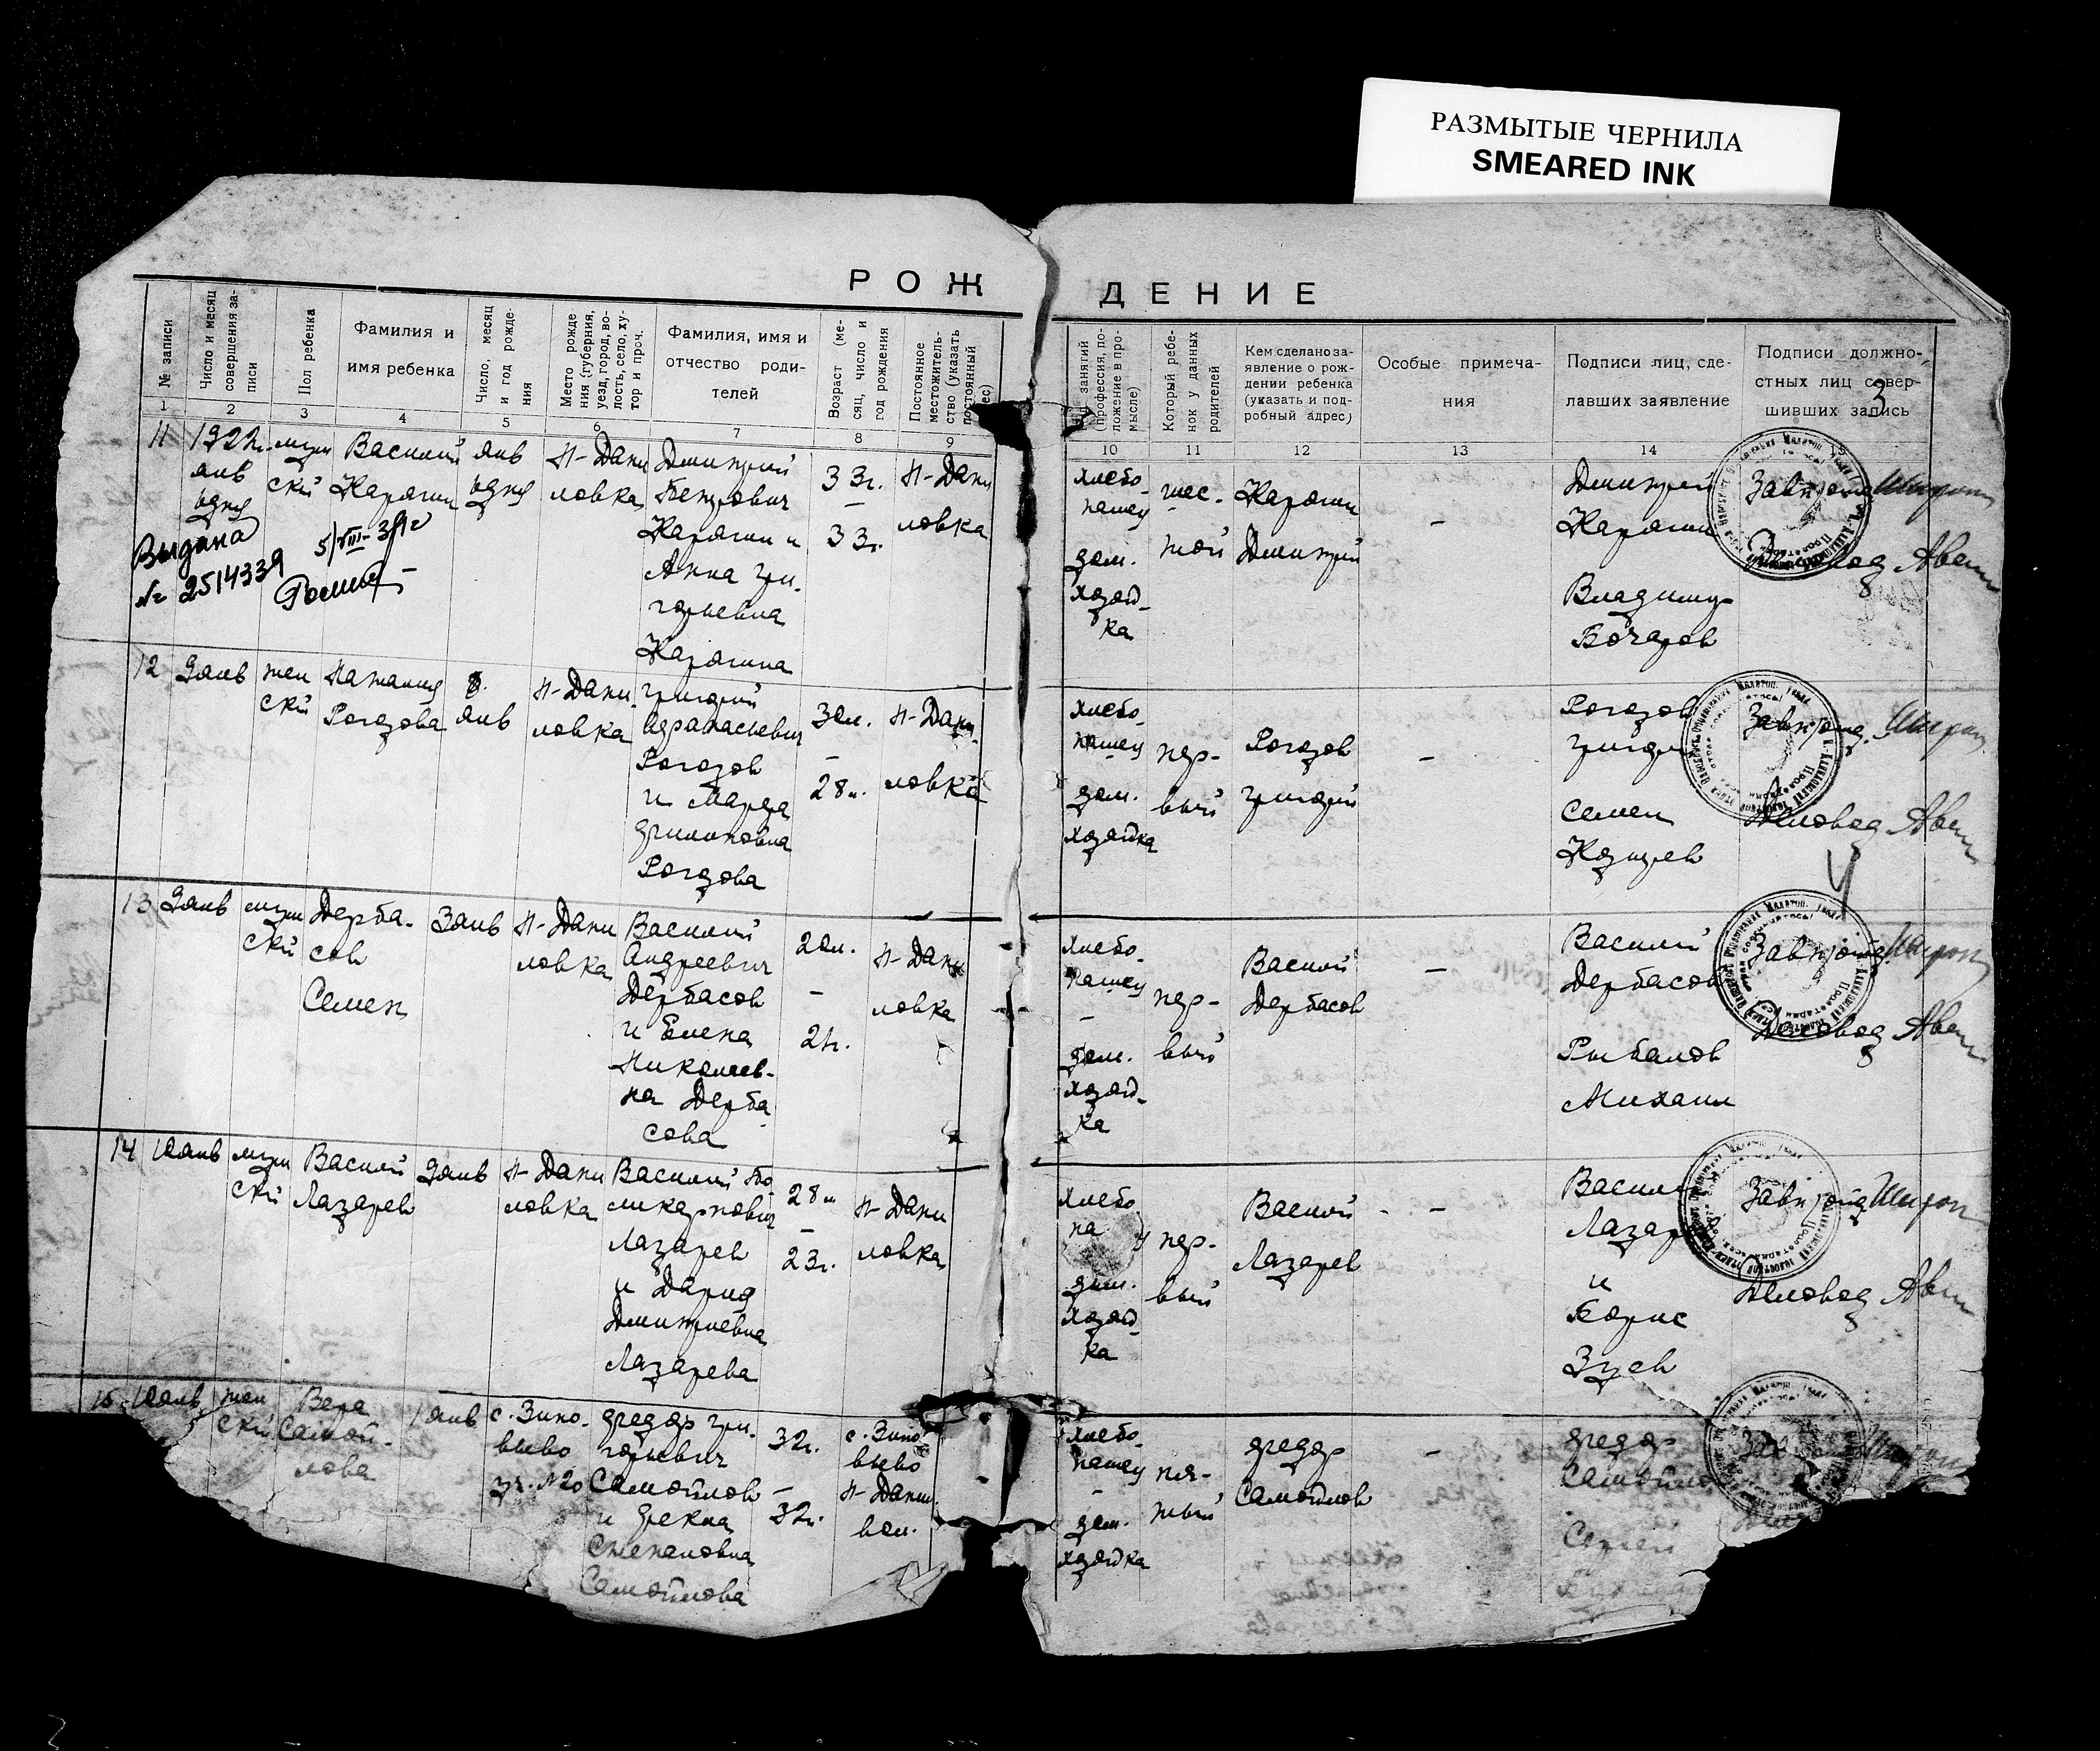 РАЗМЫТЫЕ ЧЕРНИЛА
SMEARED INK
РОЖДЕНИЕ
№ записи
Число и месяц
совершения за-
писи
Пол ребенка
Фамилия и
имя ребенка
Число, месяц
и год рожде-
ния
Место рожде
ния (губерния,
уезд, город, во-
лость, село, ху-
тор и проч.
Фамилия, имя и
отчество роди-
телей
Возраст (ме-
сяц, число и
год рождения
Постоянное
местожитель-
ство (указать
постоянный
занятий
(профессия, по-
ложение в про-
мысле)
Который ребе-
нок у данных
родителей
Кем сделано за-
явление о рож-
дении ребенка
(указать и под-
робный адрес)
Особые примеча-
ния
Подписи лиц, сде-
лавших заявление
Подписи должно-
стных лиц совер-
шивших запись
3
1 2 3 4 5 6 7 8 9 10 11 12 13 14 15
11
1922г.
янв
муж
ской
Василий
Карягин
янв
Н-Дани
ловка
Дмитрий
Петрович
Карягин и
Анна Гри-
горьевна
Карягина
33г.
–
33г.
Н-Дани
ловка
хлебо-
пашец
дом.
хозяй-
ка
шес-
той
Карягин
Дмитрий
–
Дмитрий
Карягин
Владимир
Бочаров
Выдана
№ 2514339
5/VIII-39г
12
9 янв
жен
ский
Наталия
Рогозова
8.
янв
Н-Дани
ловка
Григорий
Афанасьевич
Рогозов
и Марфа
Филиповна
Рогозова
30л.
–
28л.
Н-Дани
ловка
хлебо-
пашец
дом.
хозяйка
пер-
вый
Рогозов
Григорий
–
Рогозов
Семен
Козырев
Деловод
13
9 янв
муж
ский
Дерба-
сов
Семен
3 янв
Н-Дани
ловка
Василий
Андреевич
Дербасов
и Елена
Николаев-
на Дерба
сова
20л.
–
21г.
Н-Дани
ловка
хлебо-
пашец
–
дом.
хозяй-
ка
пер-
вый
Василий
Дербасов
–
Василий
Дербасов
Рыбалов
Михаил
Деловод
14
10 янв
муж
ский
Василий
Лазарев
9 янв
Н-Дани
ловка
Василий По
ликарпович
Лазарев
и Дария
Дмитриевна
Лазарева
28л
–
23г.
Н-Дани
ловка
хлебо
па
дом.
хозяй-
ка
пер-
вый
Василий
Лазарев
–
Василий
Лазар
и
Борис
Зуев
Деловод
15
10 янв
жен
ский
Вера
Самой-
лова
1 янв
с. Зино-
вьево
уч. №20
Федор Гри-
горьевич
Самойлов
и Фекла
Степановна
Самойлова
32г.
–
32г.
с. Зино
вьево
Н-Данил.
вол.
хлебо-
пашец
–
дом.
хозяйка
пя-
тый
Федор
Самойлов
–
Федор
Самойлов
Сергей